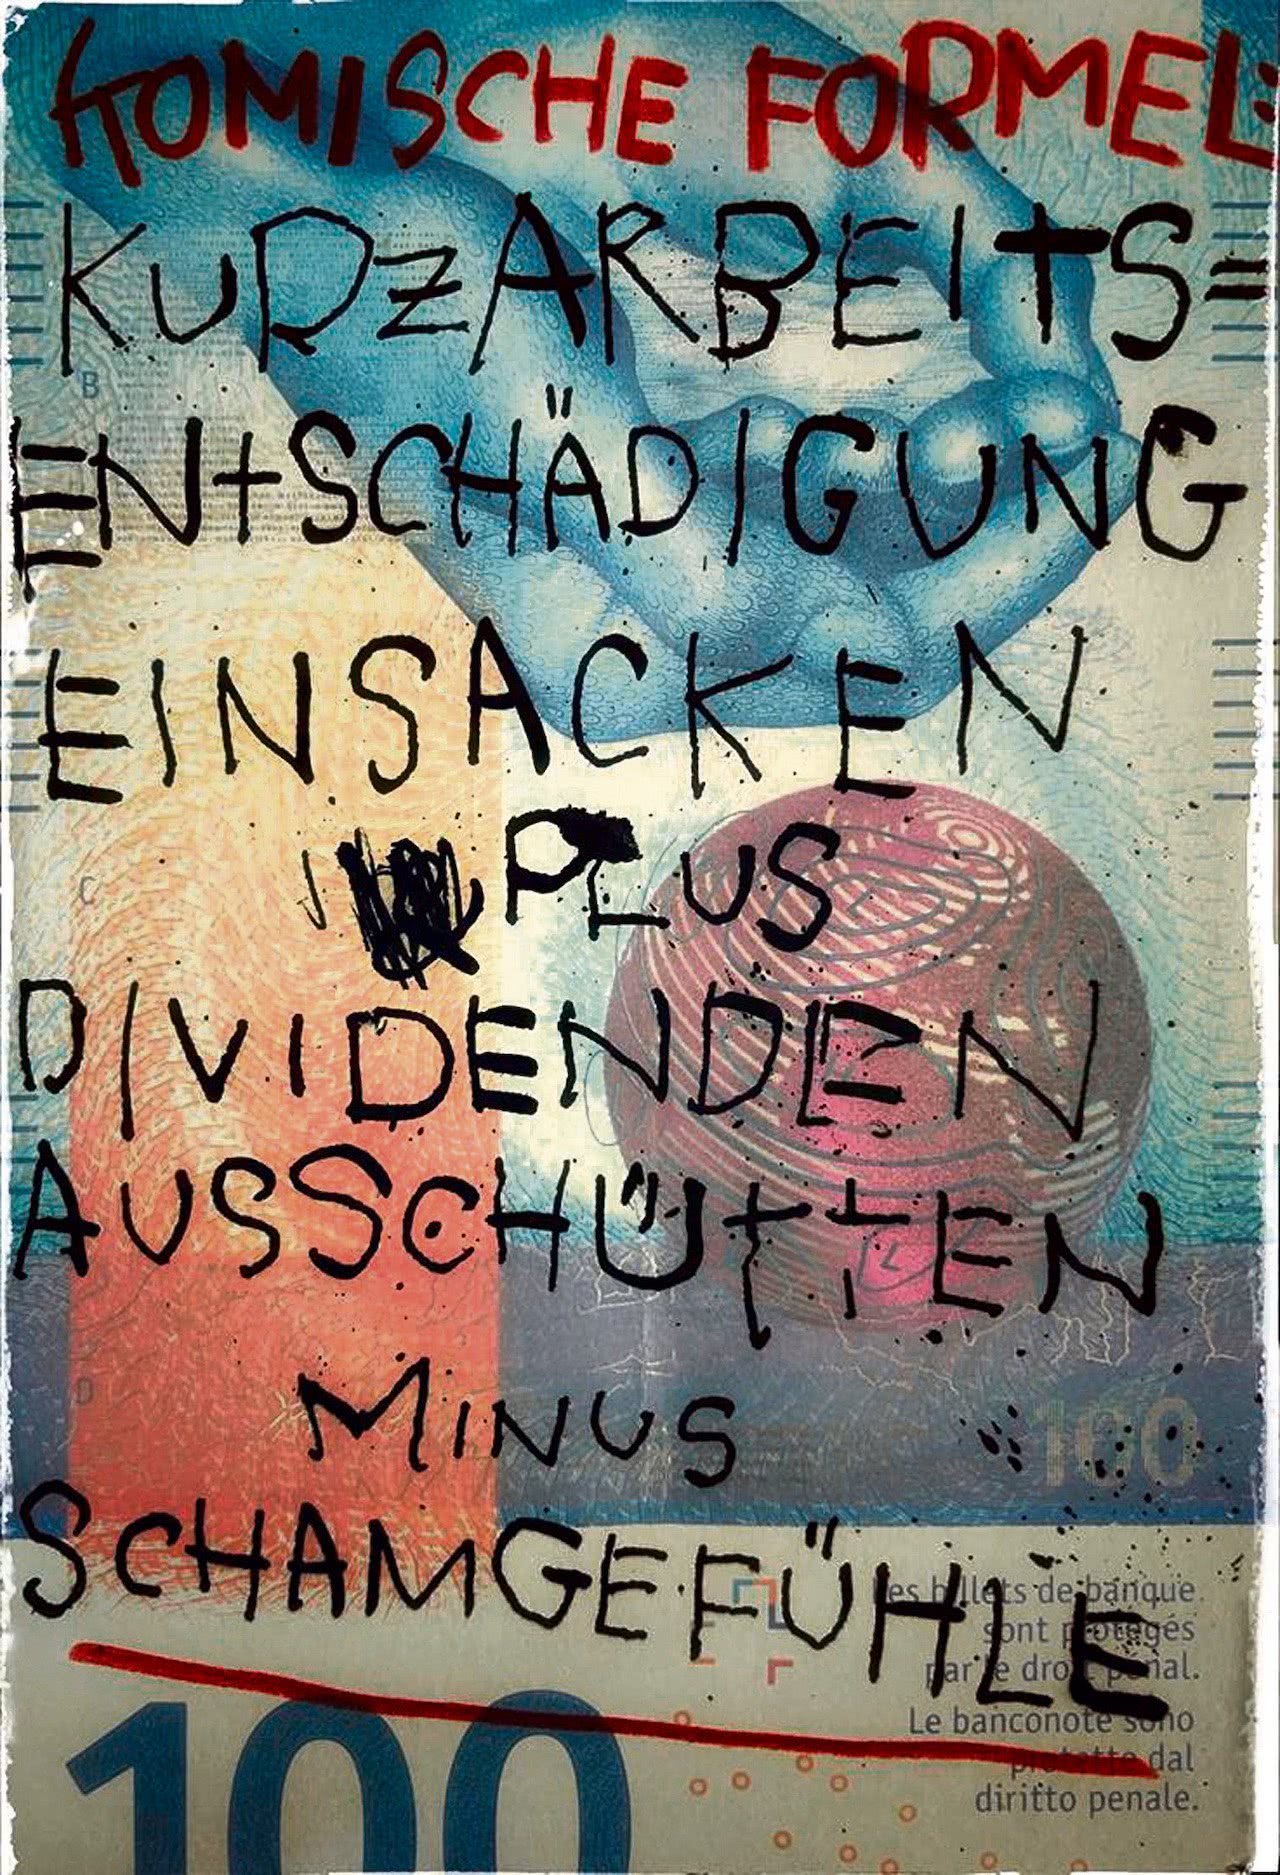 KOMISCHE FORMEL:
KURZARBEITS=
ENTSCHÄDIGUNG
EINSACKEN
PLUS
DIVIDENDEN
AUSSCHÜTTEN
MINUS
SCHAMGEFÜHLE
B
C
D
100
Les billets de banque
sont protégés
par le droit pénal.
Le banconote sono
protette dal
diritto penale.
100